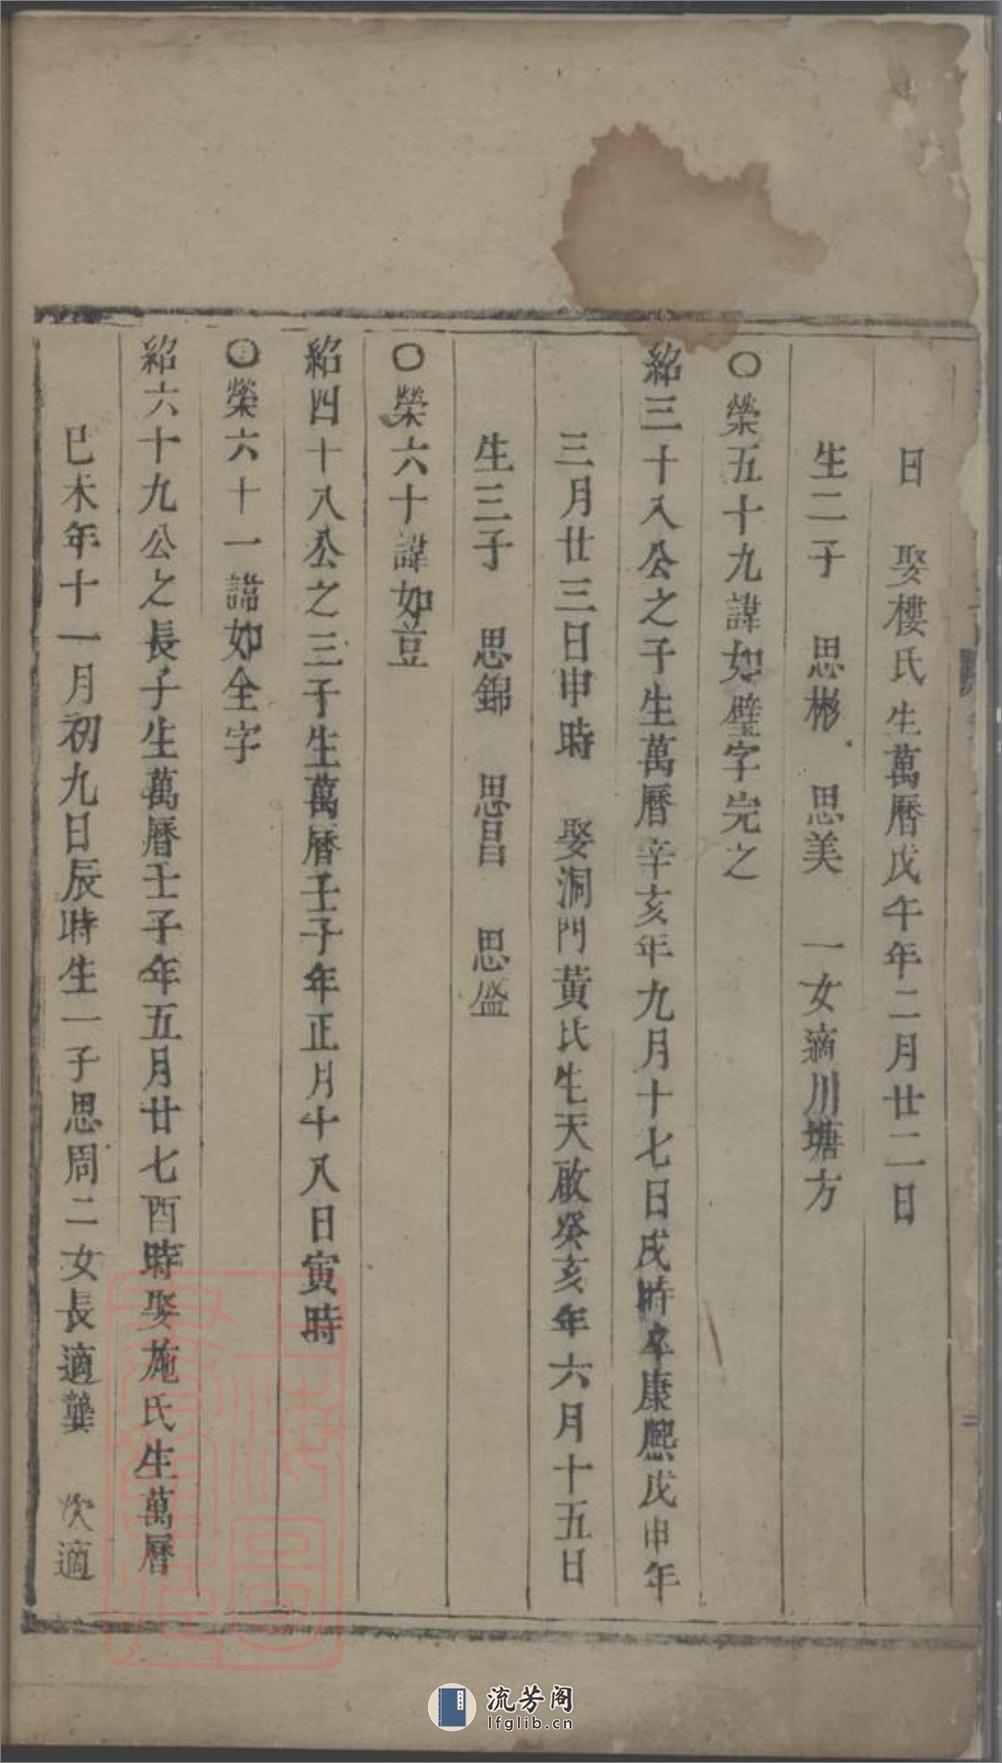 日　娶樓氏生萬曆戊午年二月廿二日
生二子　思彬　思美　一女適川塘方
○榮五十九諱如璧字完之
紹三十八公之子生萬曆辛亥年九月十七日戌時卒康熙戊申年
三月廿三日申時　娶洞門黃氏生天啟癸亥年六月十五日
生三子　思錦　思昌　思盛
○榮六十諱如豆
紹四十八公之三子生萬曆壬子年正月十八日寅時
○榮六十一諱如全字
紹六十九公之長子生萬曆壬子年五月廿七酉時娶施氏生萬曆
己未年十一月初九日辰時生一子思周二女長適龔　次適
流芳阁
lfglib.cn